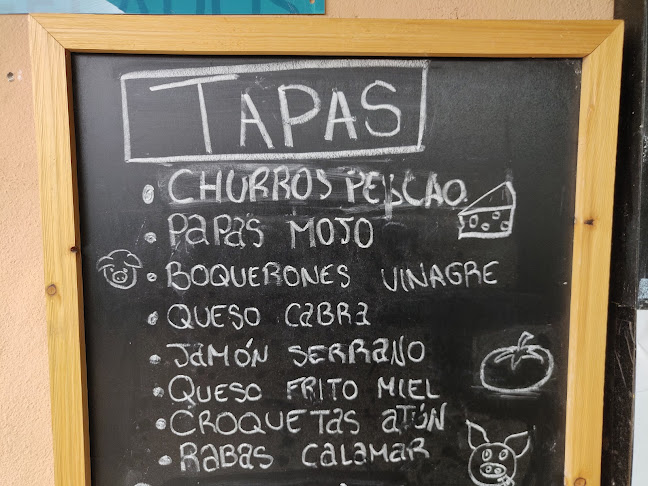 TAPAS
• CHURROS PESCAO
• PAPAS MOJO
• BOQUERONES VINAGRE
• QUESO CABRA
• JAMÓN SERRANO
• QUESO FRITO MIEL
• CROQUETAS ATÚN
• RABAS CALAMAR